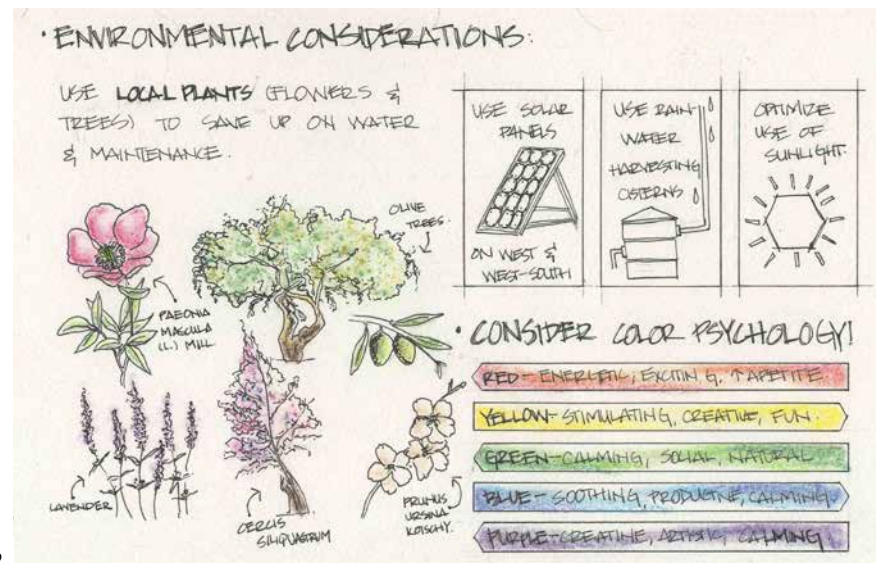 • ENVIRONMENTAL CONSIDERATIONS:
USE LOCAL PLANTS (FLOWERS &
TREES) TO SAVE UP ON WATER
& MAINTENANCE.
USE SOLAR
PANELS
ON WEST &
WEST-SOUTH
USE RAIN-
WATER
HARVESTING
CISTERNS
OPTIMIZE
USE OF
SUNLIGHT.
OLIVE
TREES.
PAEONIA
MASCULA
(L.) MILL.
LAVENDER
CERCIS
SILIQUASTRUM
PRUNUS
URSINA
KOTSCHY.
• CONSIDER COLOR PSYCHOLOGY!
RED - ENERGETIC, EXCITING, ↑ APETITE.
YELLOW - STIMULATING, CREATIVE, FUN.
GREEN - CALMING, SOCIAL, NATURAL
BLUE - SOOTHING, PRODUCTIVE, CALMING.
PURPLE - CREATIVE, ARTISTIC, CALMING